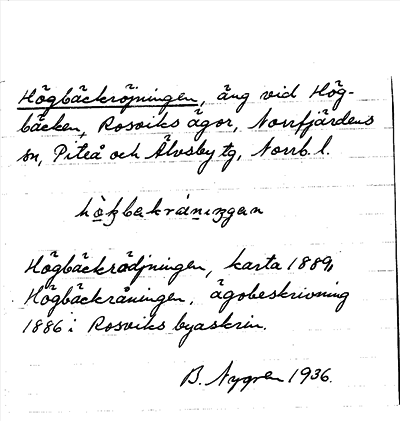 Högbäckröjningen, äng vid Hög-
bäcken, Rosviks ägor, Norrfjärdens
sn, Piteå och Älvsby tg, Norrb. l.
Högbäckrödjningen, karta 1889,
Högbäckråningen, ägobeskrivning
1886 i Rosviks byaskrin.
B. Nygren 1936.